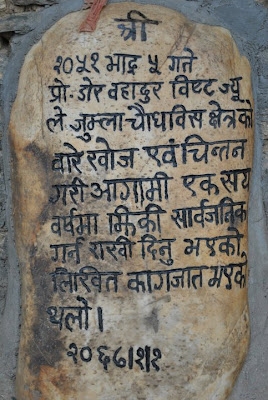 श्री
२०५१ भाद्र ५ गते
प्रो. डोर वहादुर विष्ट ज्यू
ले जुम्ला-चौधविस क्षेत्रको
वारे खोज एवं चिन्तन
गरी आगामी एक सय
वर्षमा झिकी सार्वजनिक
गर्न राखी दिनु भएको
लिखित कागजात भएको
थलो।
२०६८।१।१